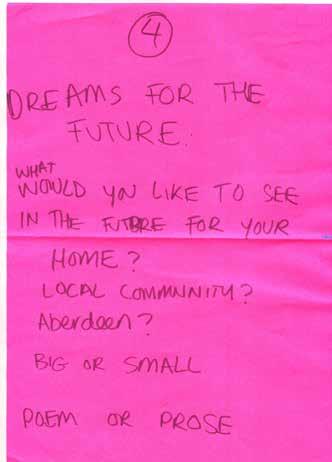 4
DREAMS FOR THE
FUTURE.
WHAT
WOULD YOU LIKE TO SEE
IN THE FUTURE FOR YOUR
HOME?
LOCAL COMMUNITY?
Aberdeen?
BIG OR SMALL
POEM OR PROSE